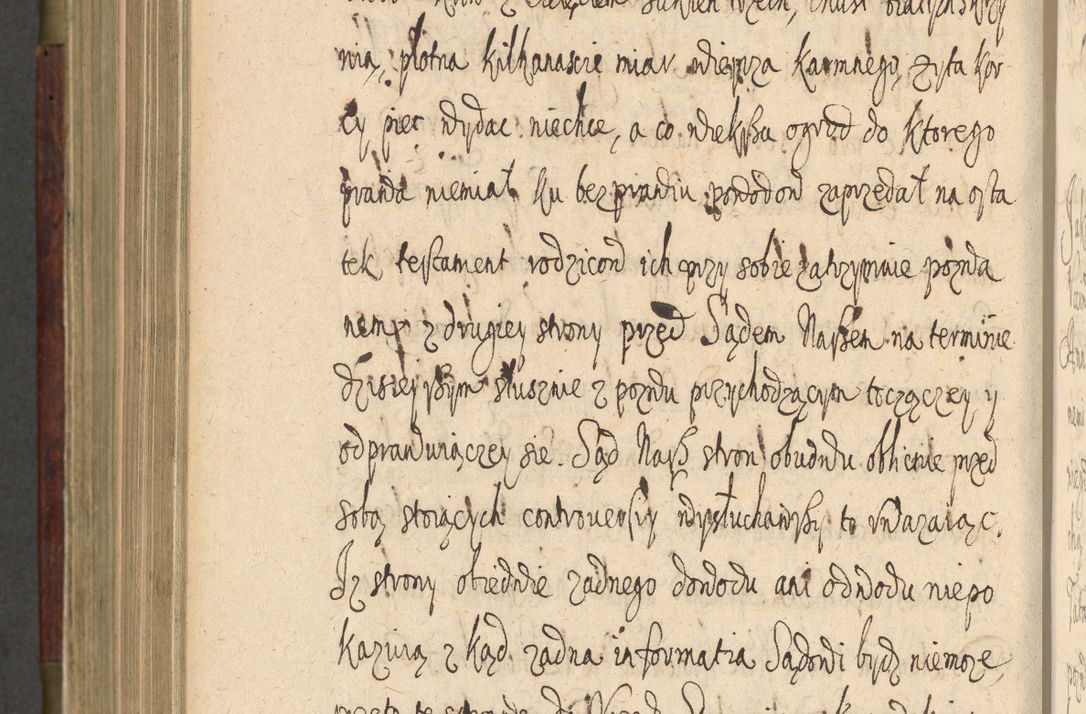 nia, płotna kilkanascie miar wieprza karmnego, żyta kor
cy pięc wydac niechce, a co wiekßa ogrod do ktorego
prawa niemiał Ku bezprawiu powodow zaprzedał na osta
tek testament rodzicow ich przy sobie zatrzymuie pozwa
nemu z drugiey strony przed Sądem Naßem na terminie
dzisieyßym słusznie z pozwu przychodzącym toczączey y
odprawuiączey się. Sąd Naß stron obudwu oblicnie przed
sobą stoiących controuersiy wysłuchawßy to vważaiąc,
Iz strony obiedwie żadnego dowodu ani odwodu niepo
kazuią z kąd żadna informatia Sądowi bydz niemoze,